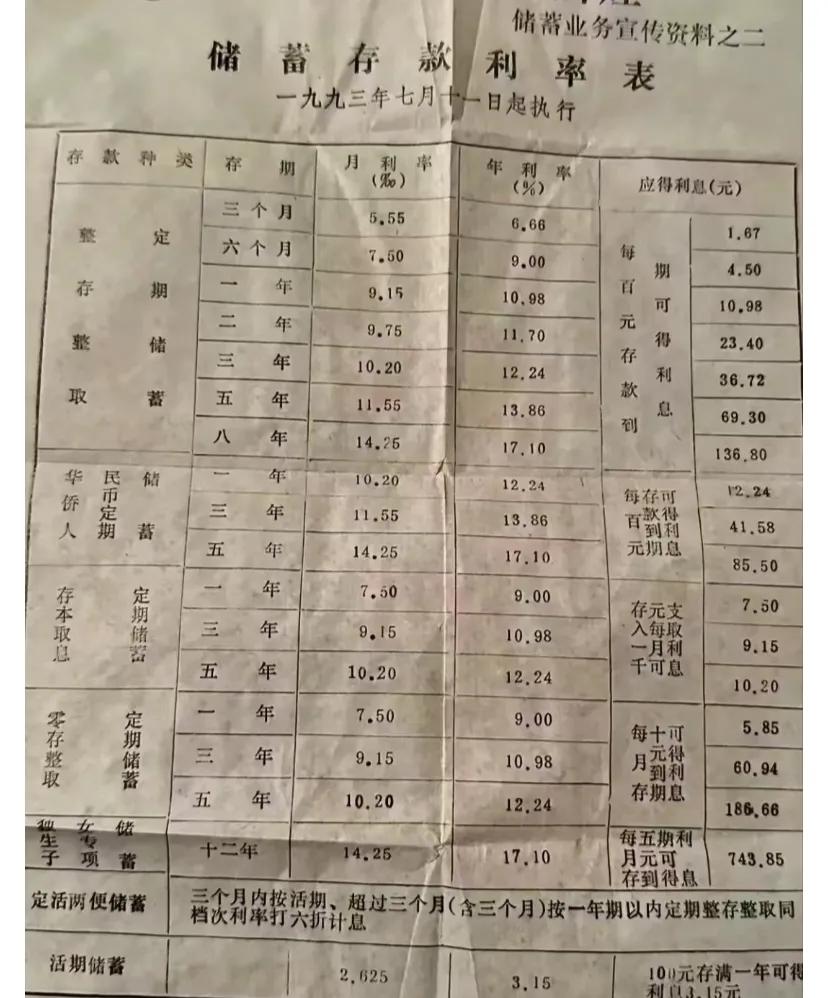 储蓄业务宣传资料之二
储蓄存款利率表
一九九三年七月十一日起执行
存款种类 存期 月利率(‰) 年利率(%) 应得利息(元)
整存整取 定期储蓄 每百元存款到期可得利息
三个月 5.55 6.66 1.67
六个月 7.50 9.00 4.50
一年 9.15 10.98 10.98
二年 9.75 11.70 23.40
三年 10.20 12.24 36.72
五年 11.55 13.86 69.30
八年 14.25 17.10 136.80
华侨人民币定期储蓄 每百元存款到期可得利息
一年 10.20 12.24 12.24
三年 11.55 13.86 41.58
五年 14.25 17.10 85.50
存本取息 定期储蓄 存入一千元每月可支取利息
一年 7.50 9.00 7.50
三年 9.15 10.98 9.15
五年 10.20 12.24 10.20
零存整取 定期储蓄 每月存十元到期可得利息
一年 7.50 9.00 5.85
三年 9.15 10.98 60.94
五年 10.20 12.24 186.66
独生子女专项储蓄 十二年 14.25 17.10 每月存五元到期可得利息 743.85
定活两便储蓄 三个月内按活期、超过三个月(含三个月)按一年期以内定期整存整取同
档次利率打六折计息
活期储蓄 2.625 3.15 100元存满一年可得
利息3.15元